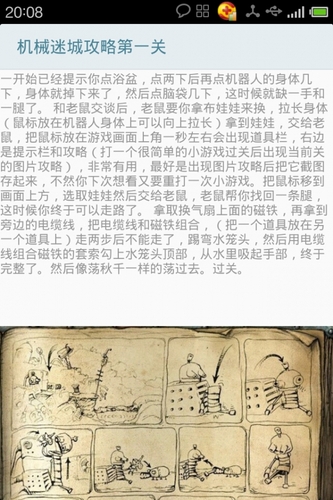 20:08
机械迷城攻略第一关
一开始已经提示你点浴盆，点两下后再点机器人的身体几
下，身体就掉下来了，然后点脑袋几下，这时候就缺一手和
一腿了。 和老鼠交谈后，老鼠要你拿布娃娃来换，拉长身体
（鼠标放在机器人身体上可以向上拉长）拿到娃娃，交给老
鼠，把鼠标放在游戏画面上角一秒左右会出现道具栏，右边
是提示栏和攻略（打一个很简单的小游戏过关后出现当前关
的图片攻略），非常有用，最好是出现图片攻略后把它截图
存起来，不然你下次想看又要重打一次小游戏。把鼠标移到
画面上方，选取娃娃然后交给老鼠，老鼠帮你找回一条腿，
这时候你终于可以走路了。 拿取换气扇上面的磁铁，再拿到
旁边的电缆线，把电缆线和磁铁组合，（把一个道具放在另
一个道具上）走两步后不能走了，踢弯水笼头，然后用电缆
线组合磁铁的套索勾上水笼头顶部，从水里吸起手部，终于
完整了。然后像荡秋千一样的荡过去。过关。